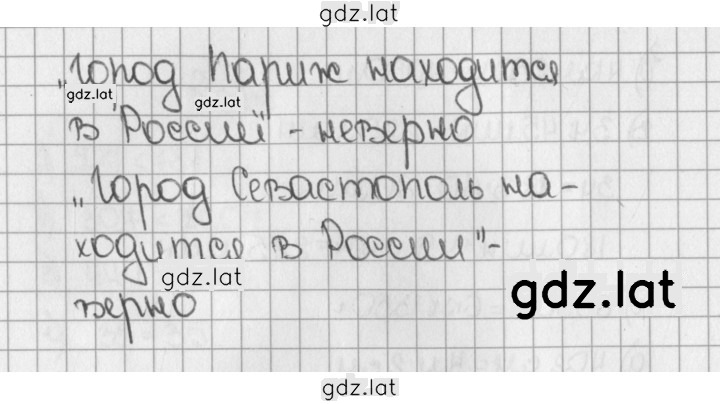 gdz.lat
„Город Париж находится
gdz.lat
gdz.lat
в России" - неверно
„Город Севастополь на-
ходится в России" -
gdz.lat
gdz.lat
верно
gdz.lat